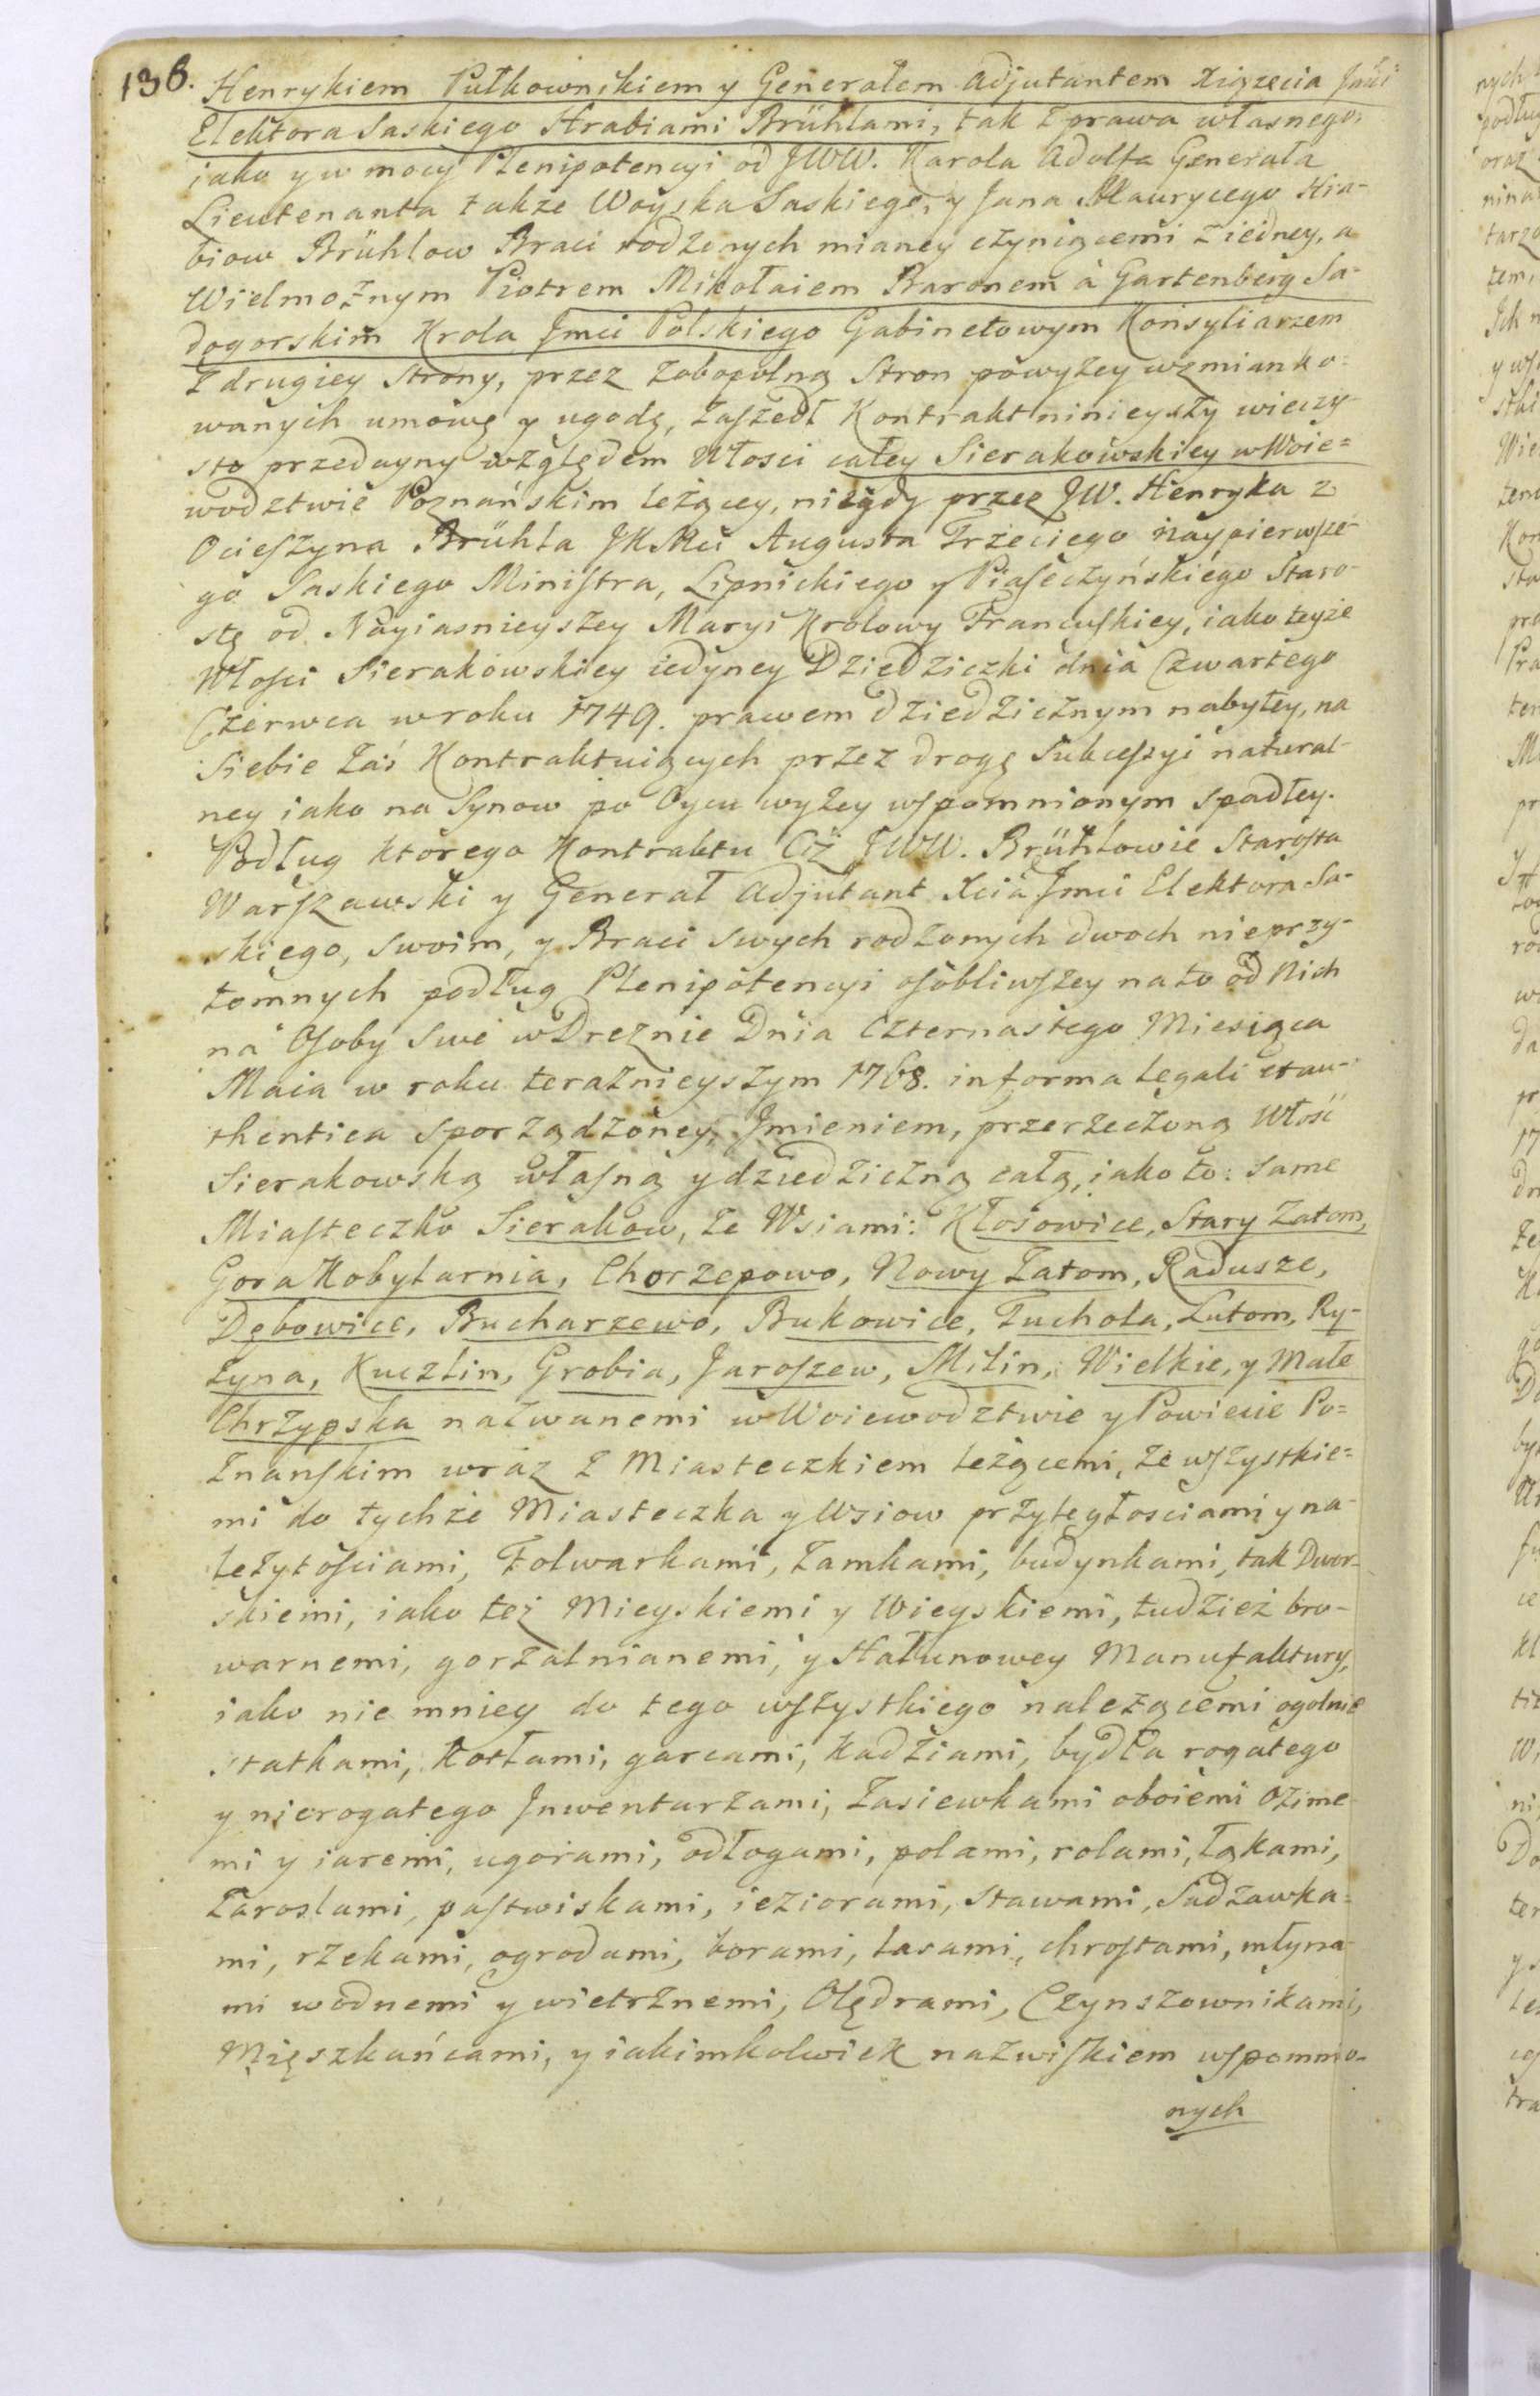 136.
Henrykiem Pułkownikiem y Generałem Adjutantem Xiązęcia Jmci
Elektora Saskiego Hrabiami Brühlami, tak z prawa własnego,
iako y w mocy Plenipotencyi od JWW. Karola Adolfa Generała
Lieutenanta także Woyska Saskiego, y Jana Maurycego Hra-
biow Brühlow Braci rodzonych mianey czyniącemi z iedney, a
Wielmożnym Piotrem Mikołaiem Baronem à Gartenberg Sa-
dogorskim Krola Jmci Polskiego Gabinetowym Konsyliarzem
z drugiey Strony, przez zobopolną Stron powyżey wzmianko-
wanych umowę y ugodę, zaszedł Kontrakt ninieyszy wieczy
sto przedayny względem Włosci całey Sierakowskiey w Woie=
wodztwie Poznańskim leżącey, niegdy przez JW. Henryka z
Ocieszyna Brühla JKMci Augusta Trzeciego naypierwsze-
go Saskiego Ministra, Lipnickiego y Piaseczyńskiego Staro-
stę od Nayiasnieyszey Maryi Krolowy Francuskiey, iako teyże
Włosci Sierakowskiey iedyney Dziedziczki dnia Czwartego
Czerwca w roku 1749. prawem dziedzicznym nabytey, na
Siebie zaś Kontraktuiących przez drogę Sukcessyi natural-
ney iako na Synow po Oycu wyżey wspomnionym spadłey.
Podług ktorego Kontraktu Ciż JWW. Brühlowie Starosta
Warszawski y Generał Adjutant Xcia Jmci Elektora Sa-
skiego, swoim, y Braci swych rodzonych dwoch nieprzy-
tomnych podług Plenipotencyi osobliwszey na to od Nich
na Osoby Swe w Dreznie Dnia Czternastego Miesiąca
Maia w roku teraznieyszym 1768. in forma legali et au-
thentica sporządzoney, Jmieniem, przerzeczoną Włość
Sierakowską własną y dziedziczną całą, iako to: same
Miasteczko Sierakow, ze Wsiami: Kłosowice, Stary Zatom,
Gora Kobylarnia, Chorzepowo, Nowy Zatom, Radusze,
Dębowice, Bucharzewo, Bukowice, Tuchola, Lutom, Ry-
żyna, Kuczlin, Grobia, Jaroszew, Milin, Wielkie, y Małe
Chrzypska nazwanemi w Woiewodztwie y Powiecie Po=
znanskim wraz z Miasteczkiem leżącemi, ze wszystkie=
mi do tychże Miasteczka y Wsiow przyległosciami y na-
leżytosciami, Folwarkami, Zamkami, budynkami, tak Dwor-
skiemi, iako też Mieyskiemi y Wieyskiemi, tudzież bro-
warnemi, gorzalnianemi, y Hałunowey Manufaktury,
iako nie mniey do tego wszystkiego należącemi ogolnie
statkami, Kotłami, garcami, Kadziami, bydła rogatego
y nierogatego Jnwentarzami, Zasiewkami oboiemi ozime
mi y iaremi, ugorami, odłogami, polami, rolami, łąkami,
Zaroslami, pastwiskami, ieziorami, stawami, Sadzawka=
mi, rzekami, ogrodami, borami, lasami, chrostami, młyna-
mi wodnemi y wietrznemi, Olędrami, Czynszownikami,
Mięszkańcami, y iakimkolwiek nazwiskiem wspomnio-
nych